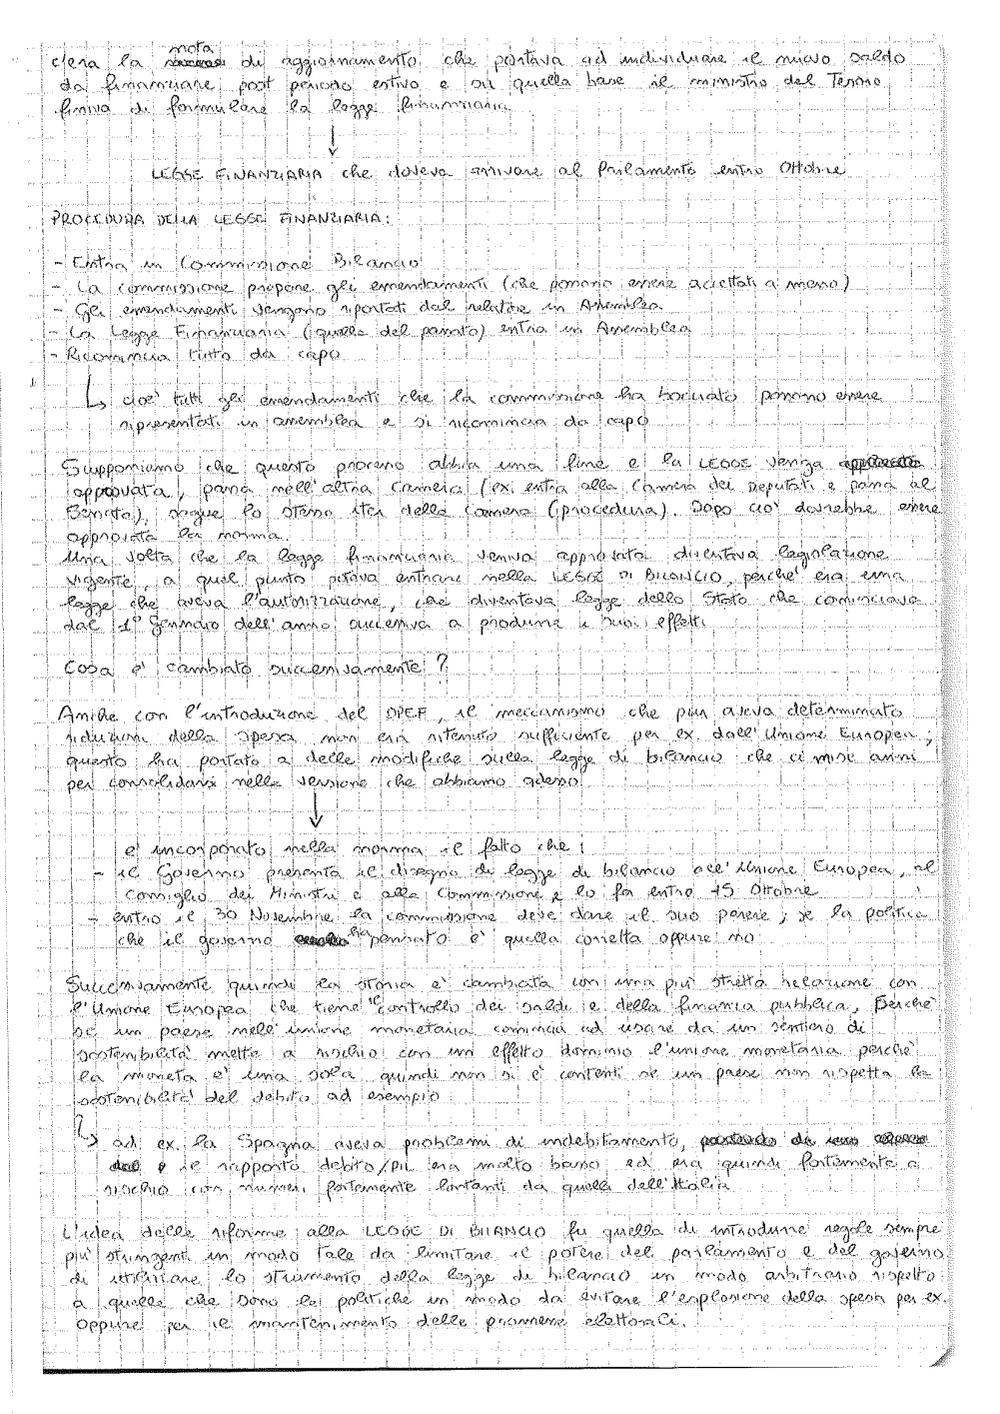 c'era la nota di aggiornamento che portava ad individuare il nuovo saldo
da finanziare post periodo estivo e su quella base il ministro del Tesoro
finiva di formulare la legge finanziaria
↓
LEGGE FINANZIARIA che doveva arrivare al Parlamento entro Ottobre
PROCEDURA DELLA LEGGE FINANZIARIA:
- Entra in Commissione Bilancio
- La commissione propone gli emendamenti (che possono essere accettati o meno)
- Gli emendamenti vengono riportati dal relatore in Assemblea
- La Legge Finanziaria (quella del passato) entra in Assemblea
- Ricomincia tutto da capo
↳ cioè tutti gli emendamenti che la commissione ha bocciato possono essere
ripresentati in assemblea e si ricomincia da capo
Supponiamo che questo processo abbia una fine e la LEGGE venga
approvata, passa nell'altra camera (ex. entra alla Camera dei Deputati e passa al
Senato), segue lo stesso iter della Camera (procedura). Dopo ciò dovrebbe essere
approvata la norma.
Una volta che la legge finanziaria veniva approvata diventava legislazione
vigente, a quel punto poteva entrare nella LEGGE DI BILANCIO, perché era una
legge che aveva l'autorizzazione, che diventava legge dello Stato che cominciava
dal 1° Gennaio dell'anno successivo a produrre i suoi effetti
Cosa è cambiato successivamente?
Anche con l'introduzione del DPEF, il meccanismo che pur aveva determinato
riduzioni della spesa non era ritenuto sufficiente per ex. dall'Unione Europea;
questo ha portato a delle modifiche sulla legge di bilancio che ci mise anni
per consolidarsi nella versione che abbiamo adesso
↓
e' incorporato nella norma il fatto che:
- il Governo presenta il disegno di legge di bilancio all'Unione Europea, al
Consiglio dei Ministri e alla Commissione e lo fa entro 15 Ottobre
- entro il 30 Novembre la commissione deve dare il suo parere; se la politica
che il governo ha pensato e' quella corretta oppure no
Successivamente quindi la storia e' cambiata con una più stretta relazione con
l'Unione Europea che tiene il controllo dei saldi e della finanza pubblica. Perché
se un paese nell'unione monetaria comincia ad uscire da un sentiero di
sostenibilità mette a rischio con un effetto dominio l'unione monetaria perché
la moneta e' una sola quindi non si e' contenti se un paese non rispetta la
sostenibilita' del debito ad esempio
↳ ad ex. la Spagna aveva problemi di indebitamento,
il rapporto debito/PIL era molto basso ed era quindi fortemente a
rischio con numeri fortemente lontani da quelli dell'Italia
L'idea delle riforme alla LEGGE DI BILANCIO fu quella di introdurre regole sempre
più stringenti in modo tale da limitare il potere del parlamento e del governo
di utilizzare lo strumento della legge di bilancio in modo arbitrario rispetto
a quelle che sono le politiche in modo da evitare l'esplosione della spesa per ex.
oppure per il mantenimento delle promesse elettorali.